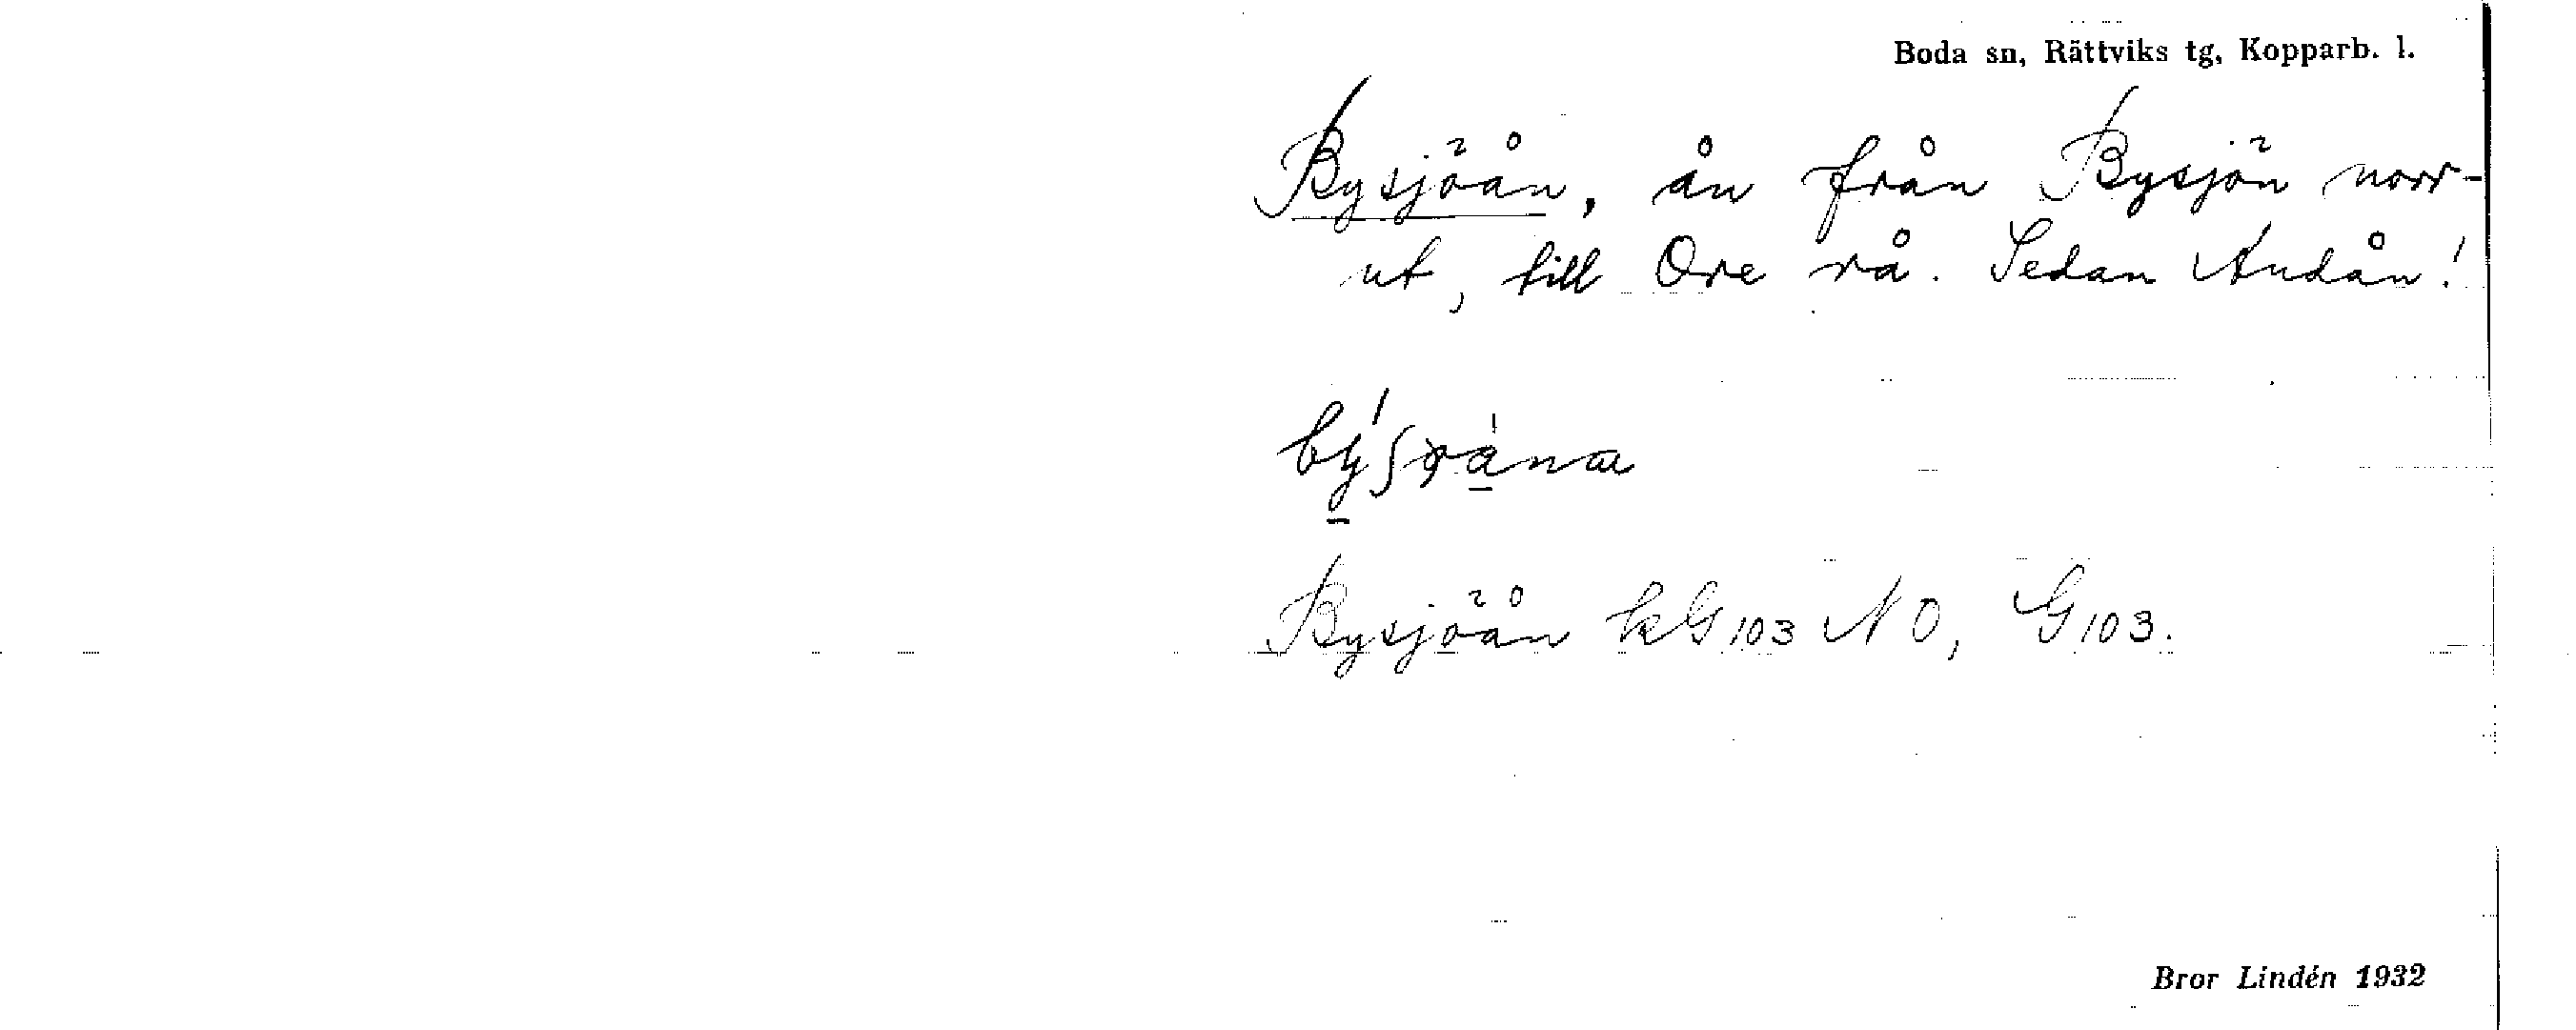 Boda sn, Rättviks tg, Kopparb. l.
Bysjöån, ån från Bysjön norr-
ut, till Ore rå. Sedan Andån!
Bysjöån kG103 NO, G103.
Bror Lindén 1932